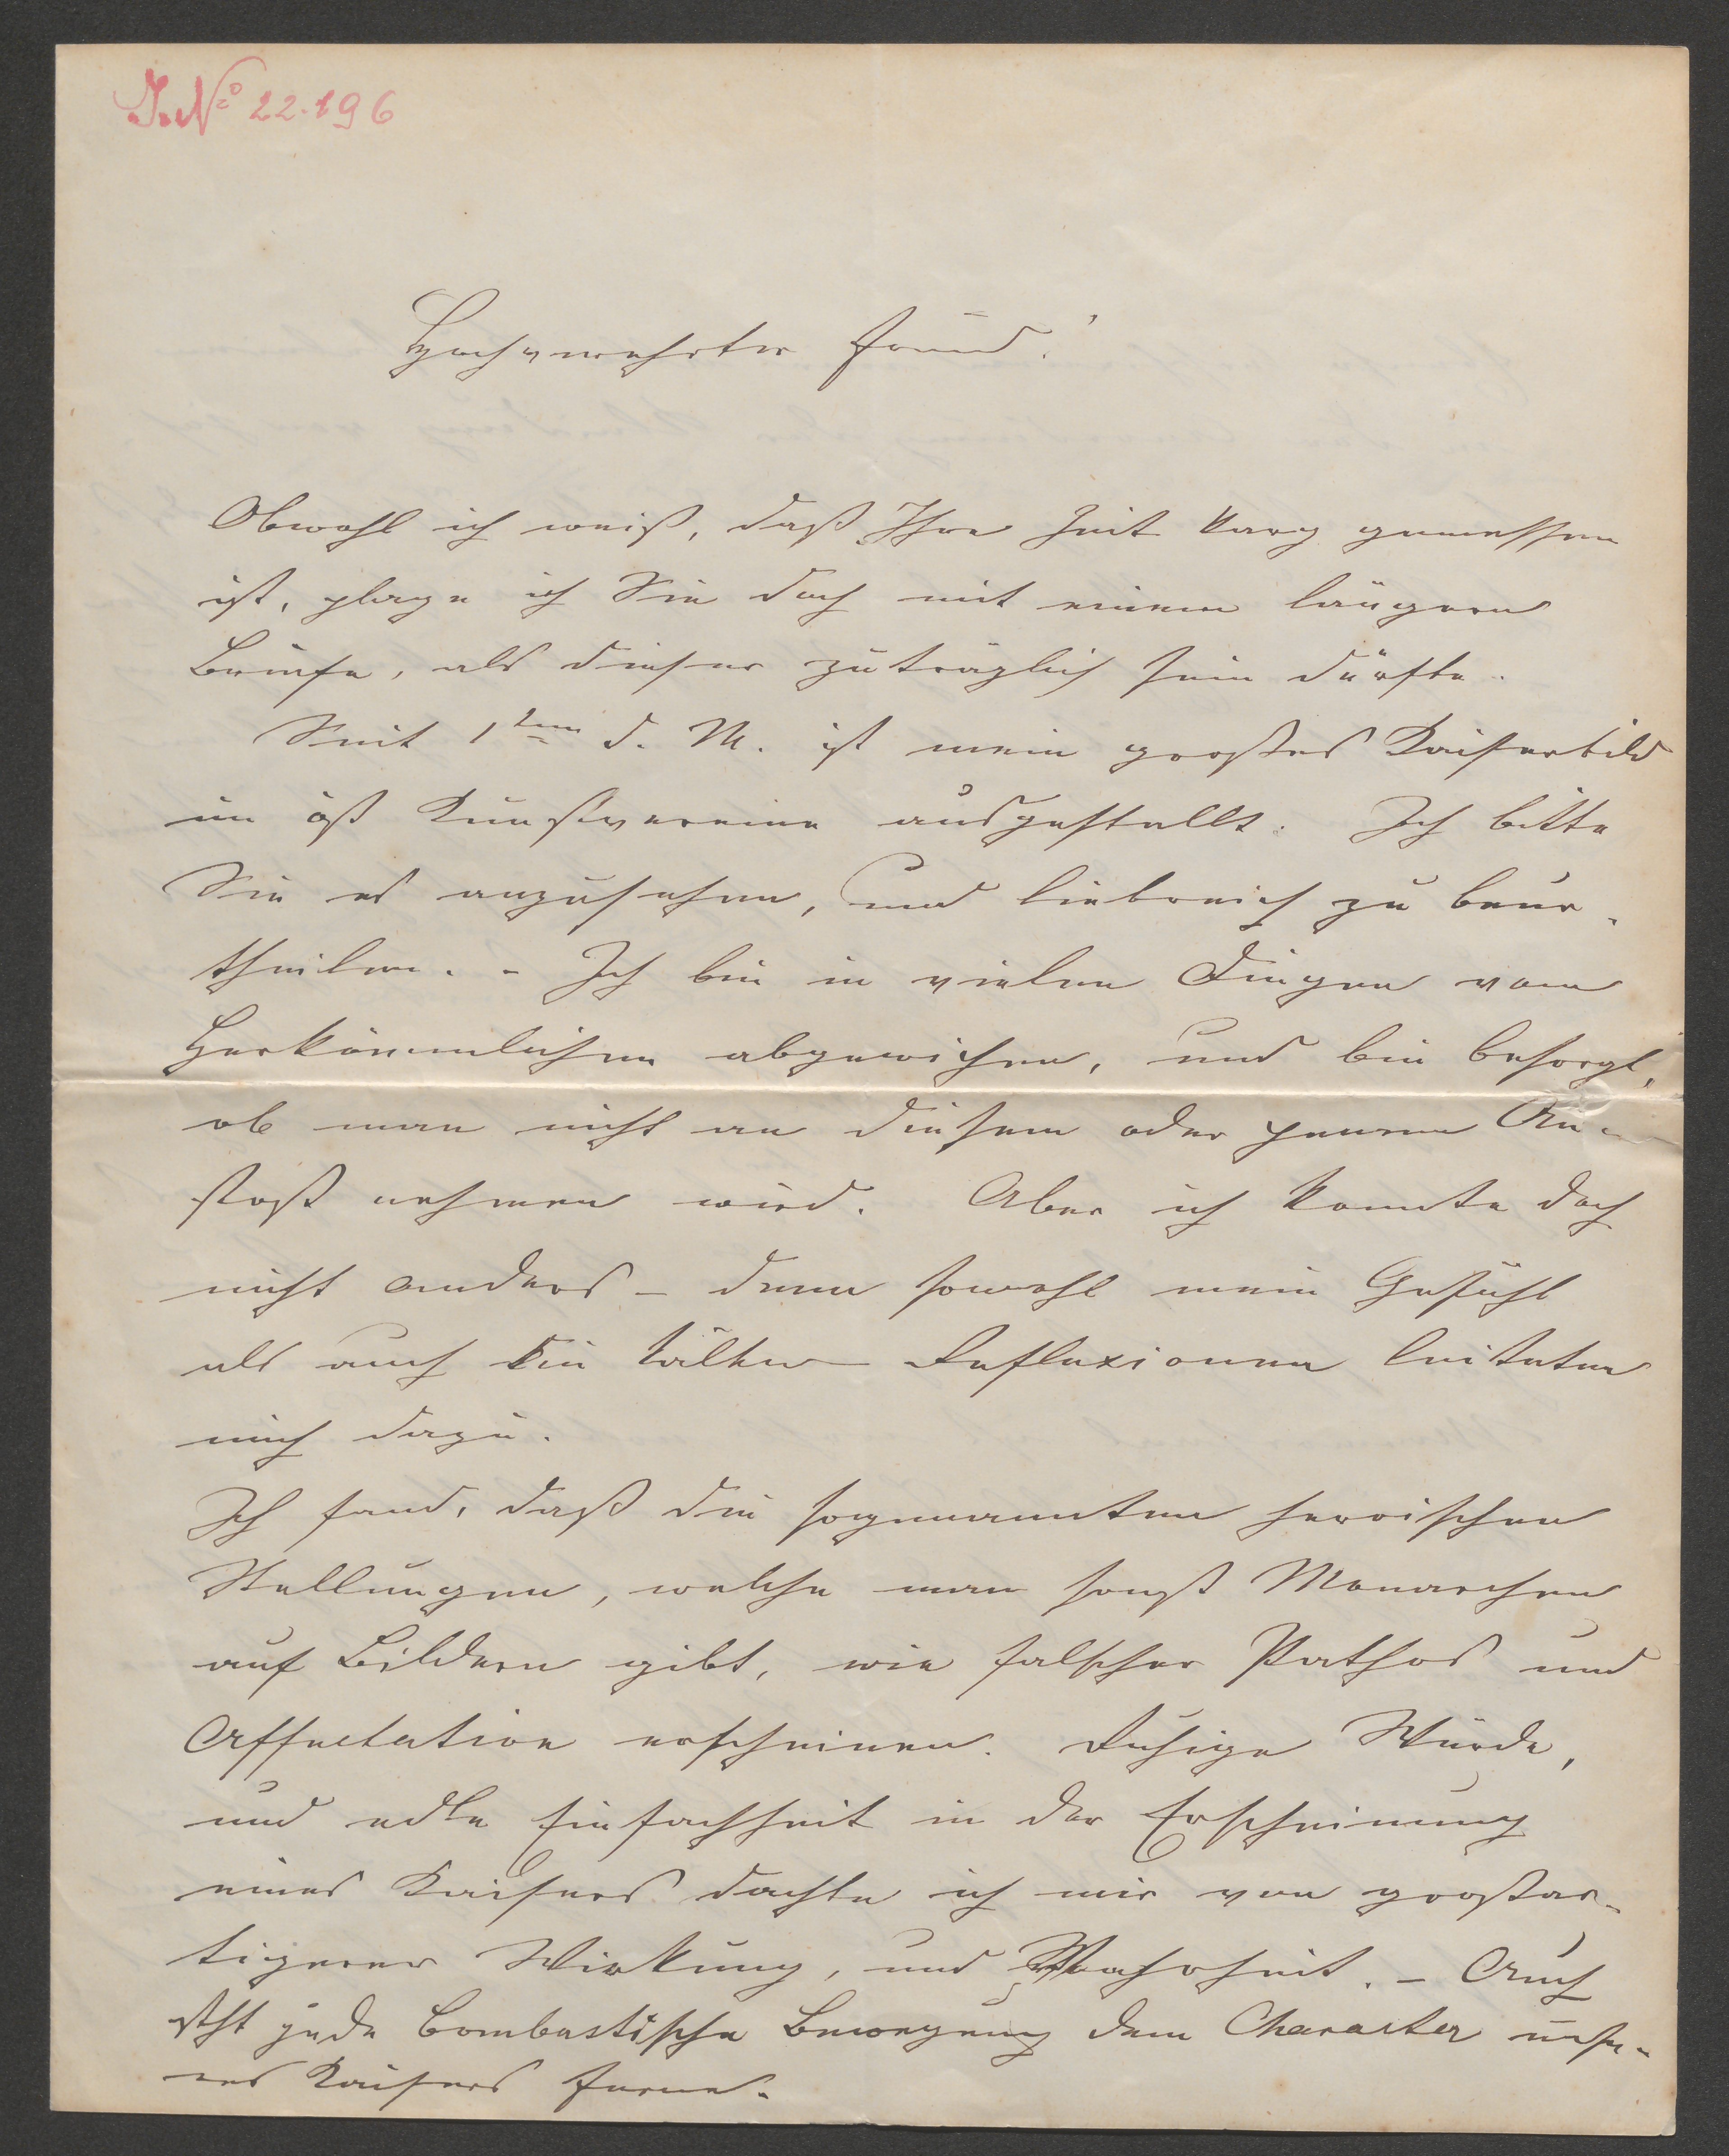 J. No 22.196
Hochverehrter Freund!
Obwohl ich weiß, daß Ihre Zeit karg gemessen
ist, plage ich Sie doch mit einem längern
Briefe, als dieser zuträglich sein dürfte.
Seit 1ten d. M. ist mein großes Kaiserbild
im öst Kunstvereine ausgestellt. Ich bitte
Sie es anzusehen, und liebreich zu beur-
theilen. - Ich bin in vielen Dingen vom
Herkömmlichen abgewichen, und bin besorgt,
ob man nicht an diesem oder jenem An-
stoß nehmen wird. Aber ich konnte doch
nicht anders - denn sowohl mein Gefühl
als auch die kälten Reflexionen leiteten
mich dazu.
Ich fand, daß die sogenannten heroischen
Stellungen, welche man sonst Monarchen
auf Bildern gibt, wie falscher Pathos und
Affectation erscheinen. Ruhige Würde,
und edle Einfachheit in der Erscheinung
eines Kaisers dachte ich mir von großar-
tigerer Wirkung, und Wahrheit. - Auch
steht jede bombastische Bewegung dem Character unse-
res Kaisers ferne.